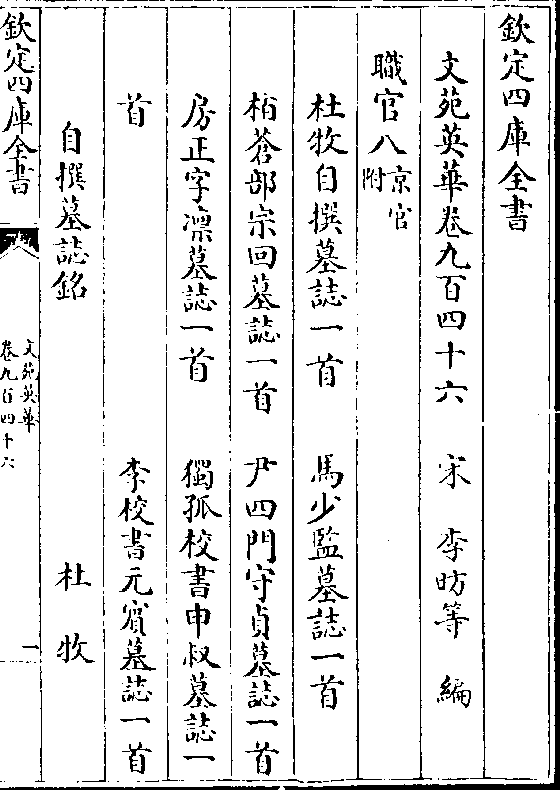 欽定四庫全書
文苑英華卷九百四十六　宋　李昉等　編
職官八京官附
杜牧自撰墓誌一首　馬少監墓誌一首
栢蒼部宗回墓誌一首　尹四門守貞墓誌一首
房正字凛墓誌一首　獨孤校書申叔墓誌一
首　李校書元賓墓誌一首
自撰墓誌銘　杜牧
欽定四庫全書
文苑英華
卷九百四十六
一